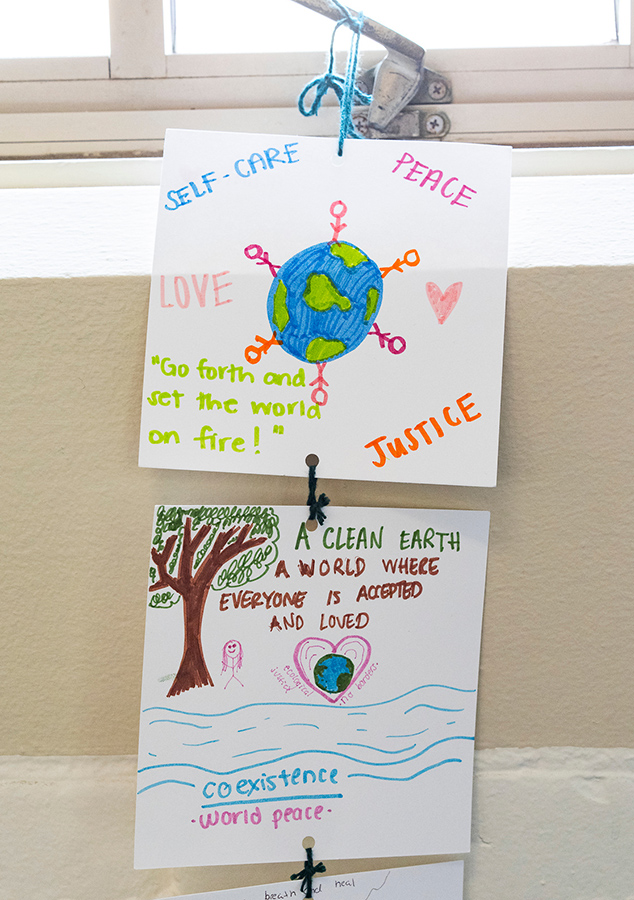 SELF-CARE
PEACE
LOVE
"Go forth and
set the world
on fire!"
JUSTICE
A CLEAN EARTH
A WORLD WHERE
EVERYONE IS ACCEPTED
AND LOVED
ecological
justice
no borders.
coexistence
·world peace·
breath and heal